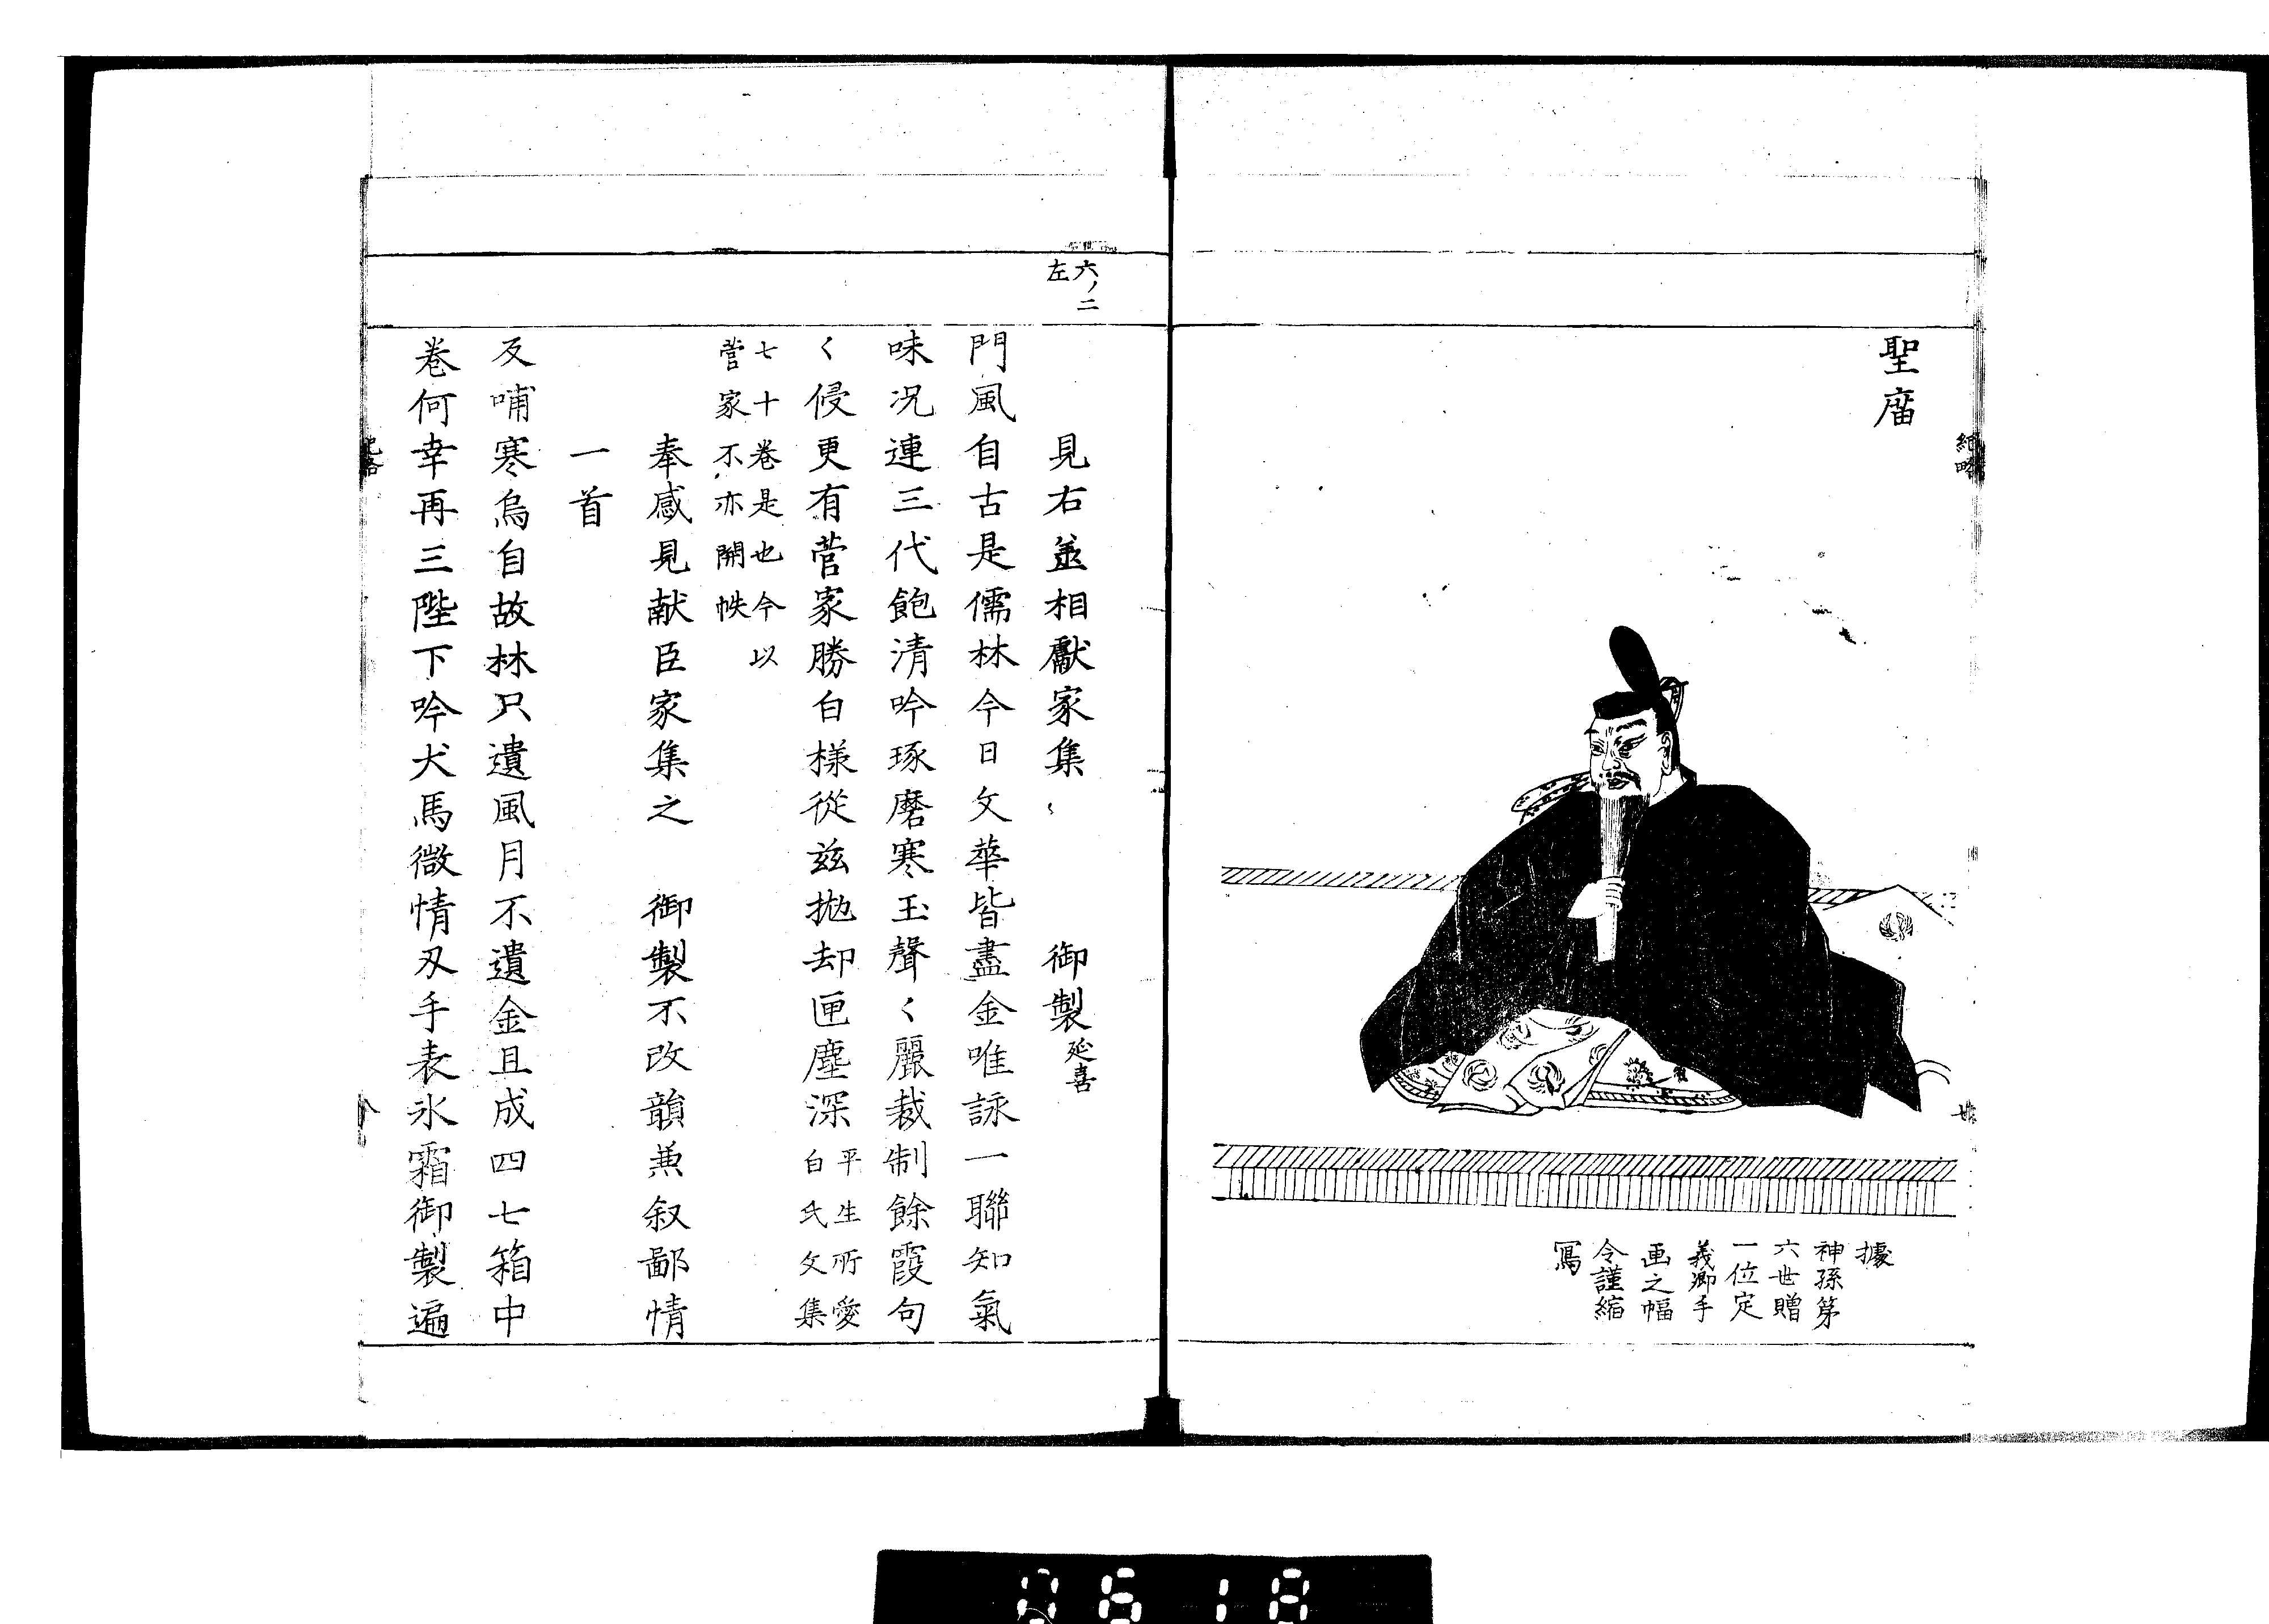 聖庿
據
神孫第
六世贈
一位定
義卿手
画之幅
令謹縮
寫
六ノ二
左
見右並相獻家集〻 御製延喜
門風自古是儒林今日文華皆盡金唯詠一聯知氣
味况連三代飽清吟琢磨寒玉聲〱麗裁制餘霞句
〱侵更有菅家勝白様從兹抛却匣塵深平生所愛
白氏文集
七十卷是也今以
菅家不亦開帙
奉感見献臣家集之 御製不改韻兼叙鄙情
一首
反哺寒烏自故林只遺風月不遺金且成四七箱中
卷何幸再三陛下吟犬馬微情刄手表氷霜御製遍
0618